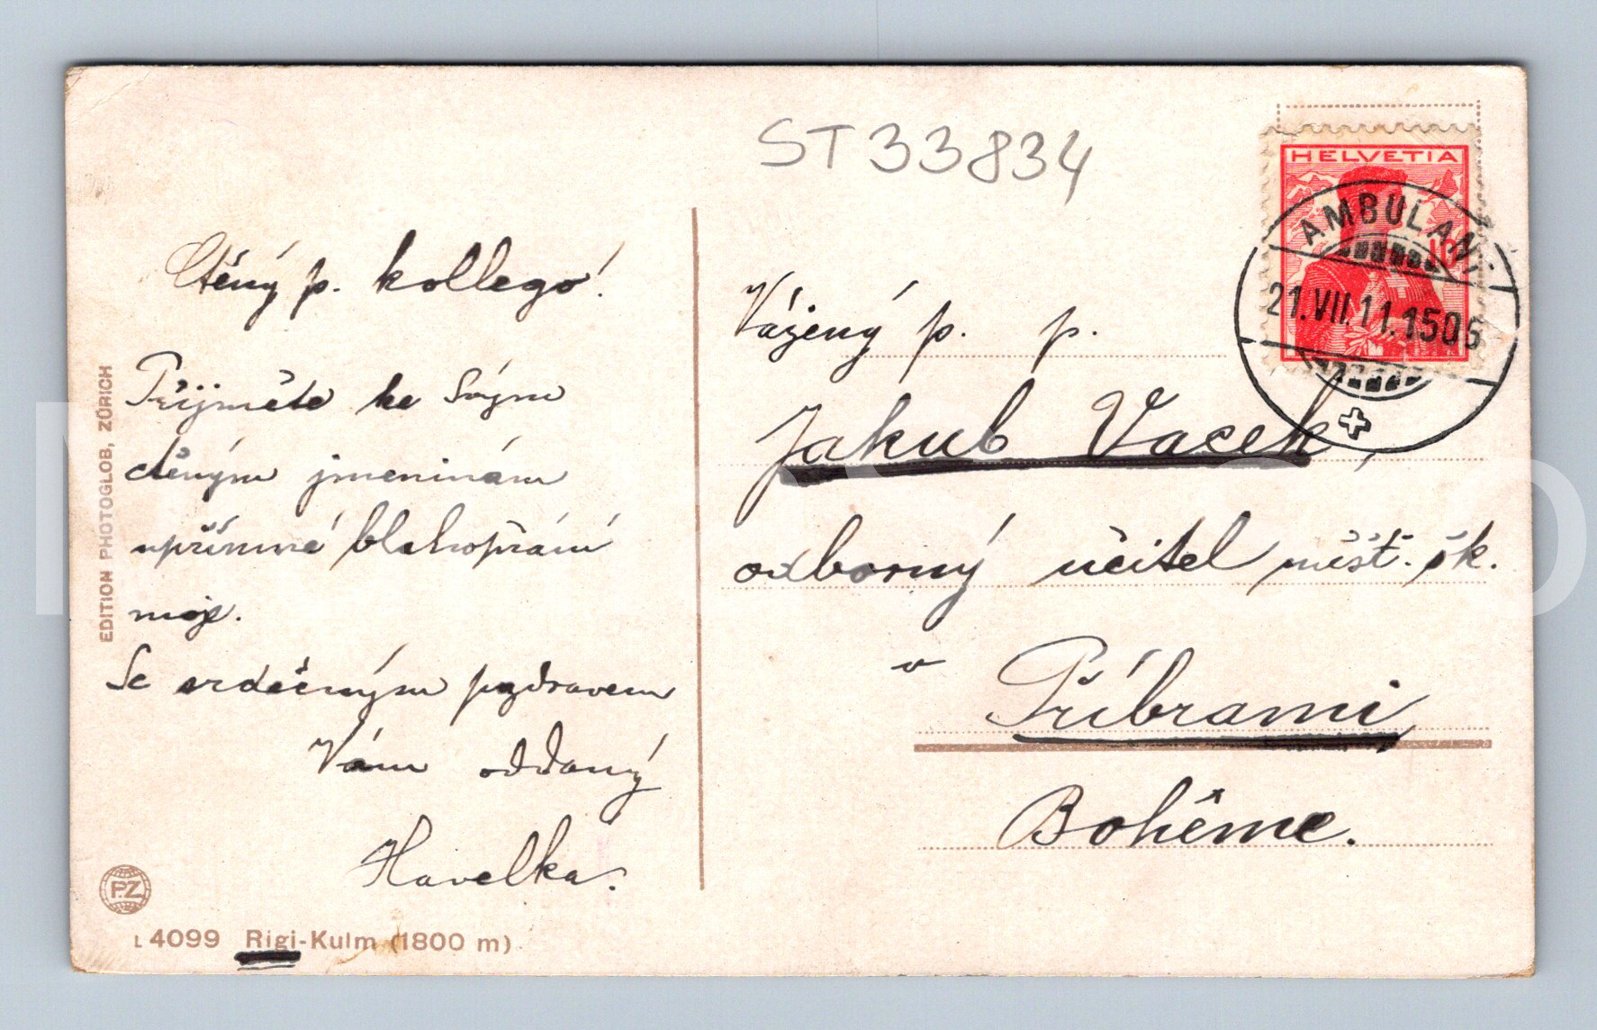 ST33834
HELVETIA
AMBULANT
21.VII.11.1506
Ctěný p. kollego!
Přijměte ke svým
ctěným jmeninám
upřímné blahopřání
moje.
Se srdečným pozdravem
Vám oddaný
Havelka.
Vážený p. p.
Jakub Vacek,
odborný učitel měšť. šk.
v Příbrami
Bohême.
EDITION PHOTOGLOB, ZÜRICH
P.Z.
L 4099 Rigi-Kulm (1800 m)